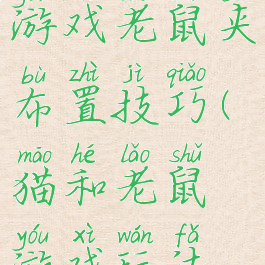 游戏老鼠夹
bù zhì jì qiǎo
布置技巧(
māo hé lǎo shǔ
猫和老鼠
yóu xì wán fǎ
游戏玩法